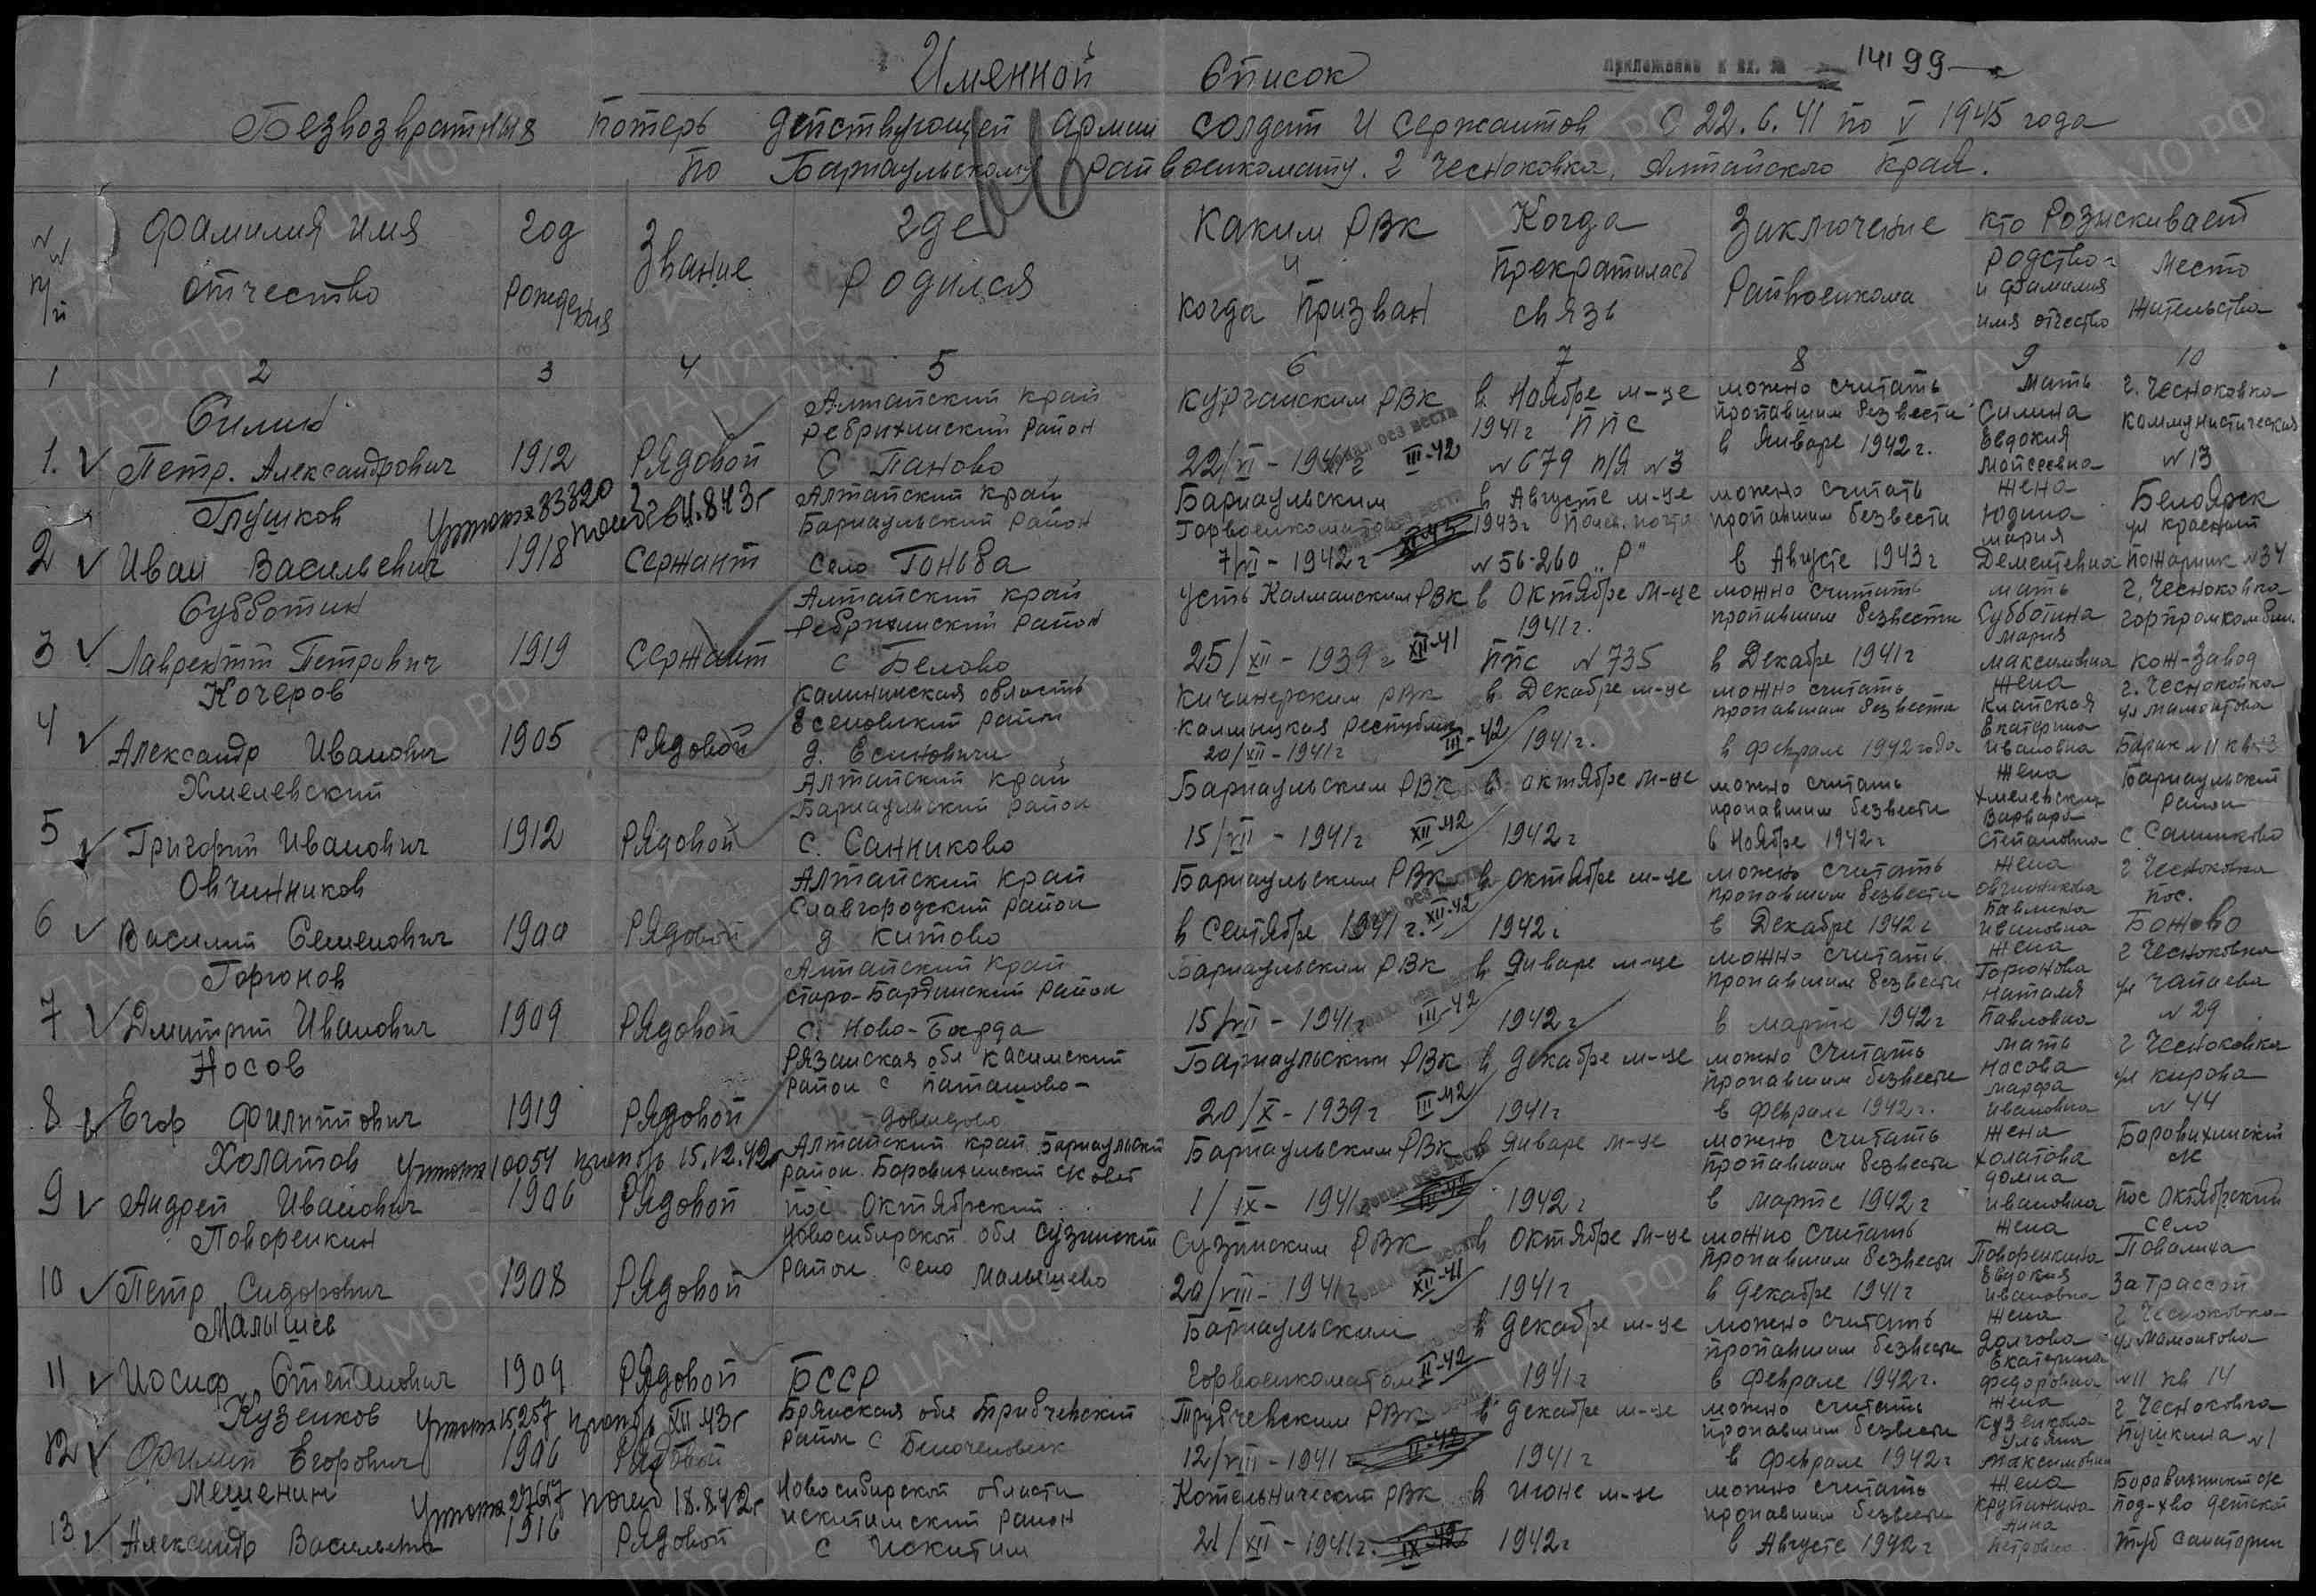 Именной список
приложение к вх. № 14199
Безвозвратных потерь действующей армии солдат и сержантов с 22.6.41 по V 1945 года
по Барнаульскому райвоенкомату. г Чесноковка, Алтайского края.
№ п/п
Фамилия имя отчество
год рождения
Звание
где родился
Каким РВК и когда призван
Когда прекратилась связь
Заключение Райвоенкома
кто Розыскивает
родство и фамилия имя отчество
место жительства
1 2 3 4 5 6 7 8 9 10
1. Силин
Петр. Александрович
1912
Рядовой
Алтайский край
Ребрихинский район
с Паново
Курганским РВК
22/VI - 1941 г
III-42
в Ноябре м-це
1941 г ППС
№ 679 п/я № 3
можно считать
пропавшим безвести
в Январе 1942 г.
мать
Силина
Евдокия
Мойсеевна
г. Чесноковка
Коммунистическая
№ 13
2 Глушков
Иван Васильевич
Учтен 83320
погиб 24.8.43 г
1918
Сержант
Алтайский край
Барнаульский район
село Гоньба
Барнаульским
Горвоенкоматом
7/VI - 1942 г
в Августе м-це
1943 г Полев. почта
№ 56-260 "Р"
можно считать
пропавшим безвести
в Августе 1943 г
жена
Юдина
мария
Дементевна
Белоярск
ул красный
пожарник № 34
3 Субботин
Лаврентий Петрович
1919
Сержант
Алтайский край
Ребрихинский район
с Белово
Усть Калманским РВК
25/XII - 1939 г
XII-41
в Октябре м-це
1941 г.
ППС № 735
можно считать
пропавшим безвести
в Декабре 1941 г
мать
Субботина
мария
максимовна
г. Чесноковка
горпромкомбин.
кож-завод
4 Кочеров
Александр Иванович
1905
Рядовой
Калининская область
Есеновский район
д. Есиновичи
Кичинерским РВК
Калмыцкая республик
20/XII - 1941 г
III-42
в Декабре м-це
1941 г.
можно считать
пропавшим безвести
в феврале 1942 года
жена
Екатерина
Ивановна
г. Чесноковка
ул мамонтова
Барак № 11 кв 3
5 Хмелевский
Григорий Иванович
1912
Рядовой
Алтайский край
Барнаульский район
с. Санниково
Барнаульским РВК
15/VII - 1941 г
XII-42
в октябре м-це
1942 г
можно считать
пропавшим безвести
в Ноябре 1942 г
жена
Хмелевская
Варвара
Степановна
Барнаульский
район
с Санниково
6 Овчинников
Василий Семенович
1900
Рядовой
Алтайский край
Славгородский район
д Китово
Барнаульским РВК
в Сентябре 1941 г.
XII-42
в октябре м-це
1942 г
можно считать
пропавшим безвести
в Декабре 1942 г
жена
Овчинникова
Павлина
Ивановна
г Чесноковка
пос.
Божово
7 Горюнов
Дмитрий Иванович
1909
Рядовой
Алтайский край
Старо-Бардинский район
с. Ново-Барда
Барнаульским РВК
15/VII - 1941 г
III-42
в Январе м-це
1942 г
можно считать
пропавшим безвести
в марте 1942 г
жена
Горюнова
Наталя
Павловна
г Чесноковка
ул Чапаева
№ 29
8 Носов
Егор Филиппович
1919
Рядовой
Рязанская обл Касимский
район с паташово-
Барнаульским РВК
20/X - 1939 г
III-42
в декабре м-це
1941 г
можно считать
пропавшим безвести
в феврале 1942 г.
мать
Носова
марфа
Ивановна
г Чесноковка
ул кирова
№ 44
9 Холатов
Андрей Иванович
Учтен 10054 15.12.42
1906
Рядовой
Алтайский край Барнаульский
район. Боровихинский с/совет
пос Октябрский
Барнаульским РВК
1/IX - 1941
в Январе м-це
1942 г
можно считать
пропавшим безвести
в марте 1942 г
жена
Холатова
домна
Ивановна
Боровихинский
с/с
пос Октябрский
10 Поворенкин
Петр Сидорович
1908
Рядовой
Новосибирской обл Сузинский
район село Малышево
Сузинским РВК
20/VIII - 1941 г
XII-41
в октябре м-це
1941 г
можно считать
пропавшим безвести
в декабре 1941 г
жена
Поворенкина
Евдокия
Ивановна
село
Повалиха
За трассой
11 Малышев
Иосиф Степанович
1909
Рядовой
БССР
Барнаульским
Горвоенкоматом
II-42
в декабре м-це
1941 г
можно считать
пропавшим безвести
в феврале 1942 г.
жена
Долгова
Екатерина
Федоровна
г Чесноковка
ул мамонтова
№ 11 кв 14
12 Кузенков
Филип Егорович
Учтен 15257 XII 43 г
1906
Рядовой
Брянская обл Трубчевский
район с
Трубчевским РВК
12/VIII - 1941 г
II-42
в декабре м-це
1941 г
можно считать
пропавшим безвести
в феврале 1942 г
жена
Кузенкова
Ульяна
Максимовна
г Чесноковка
Пушкина № 1
13 Мешенин
Александр Васильевич
Учтен 2767 погиб 18.8.42 г
1916
Рядовой
Новосибирской области
искитимский район
с Искитим
Котельнический РВК
21/XII - 1941 г.
IX-42
в июне м-це
1942 г
можно считать
пропавшим безвести
в Августе 1942 г
жена
Крупинина
Нина
Петровна
Боровихинский с/с
под-хво детской
туб санатории